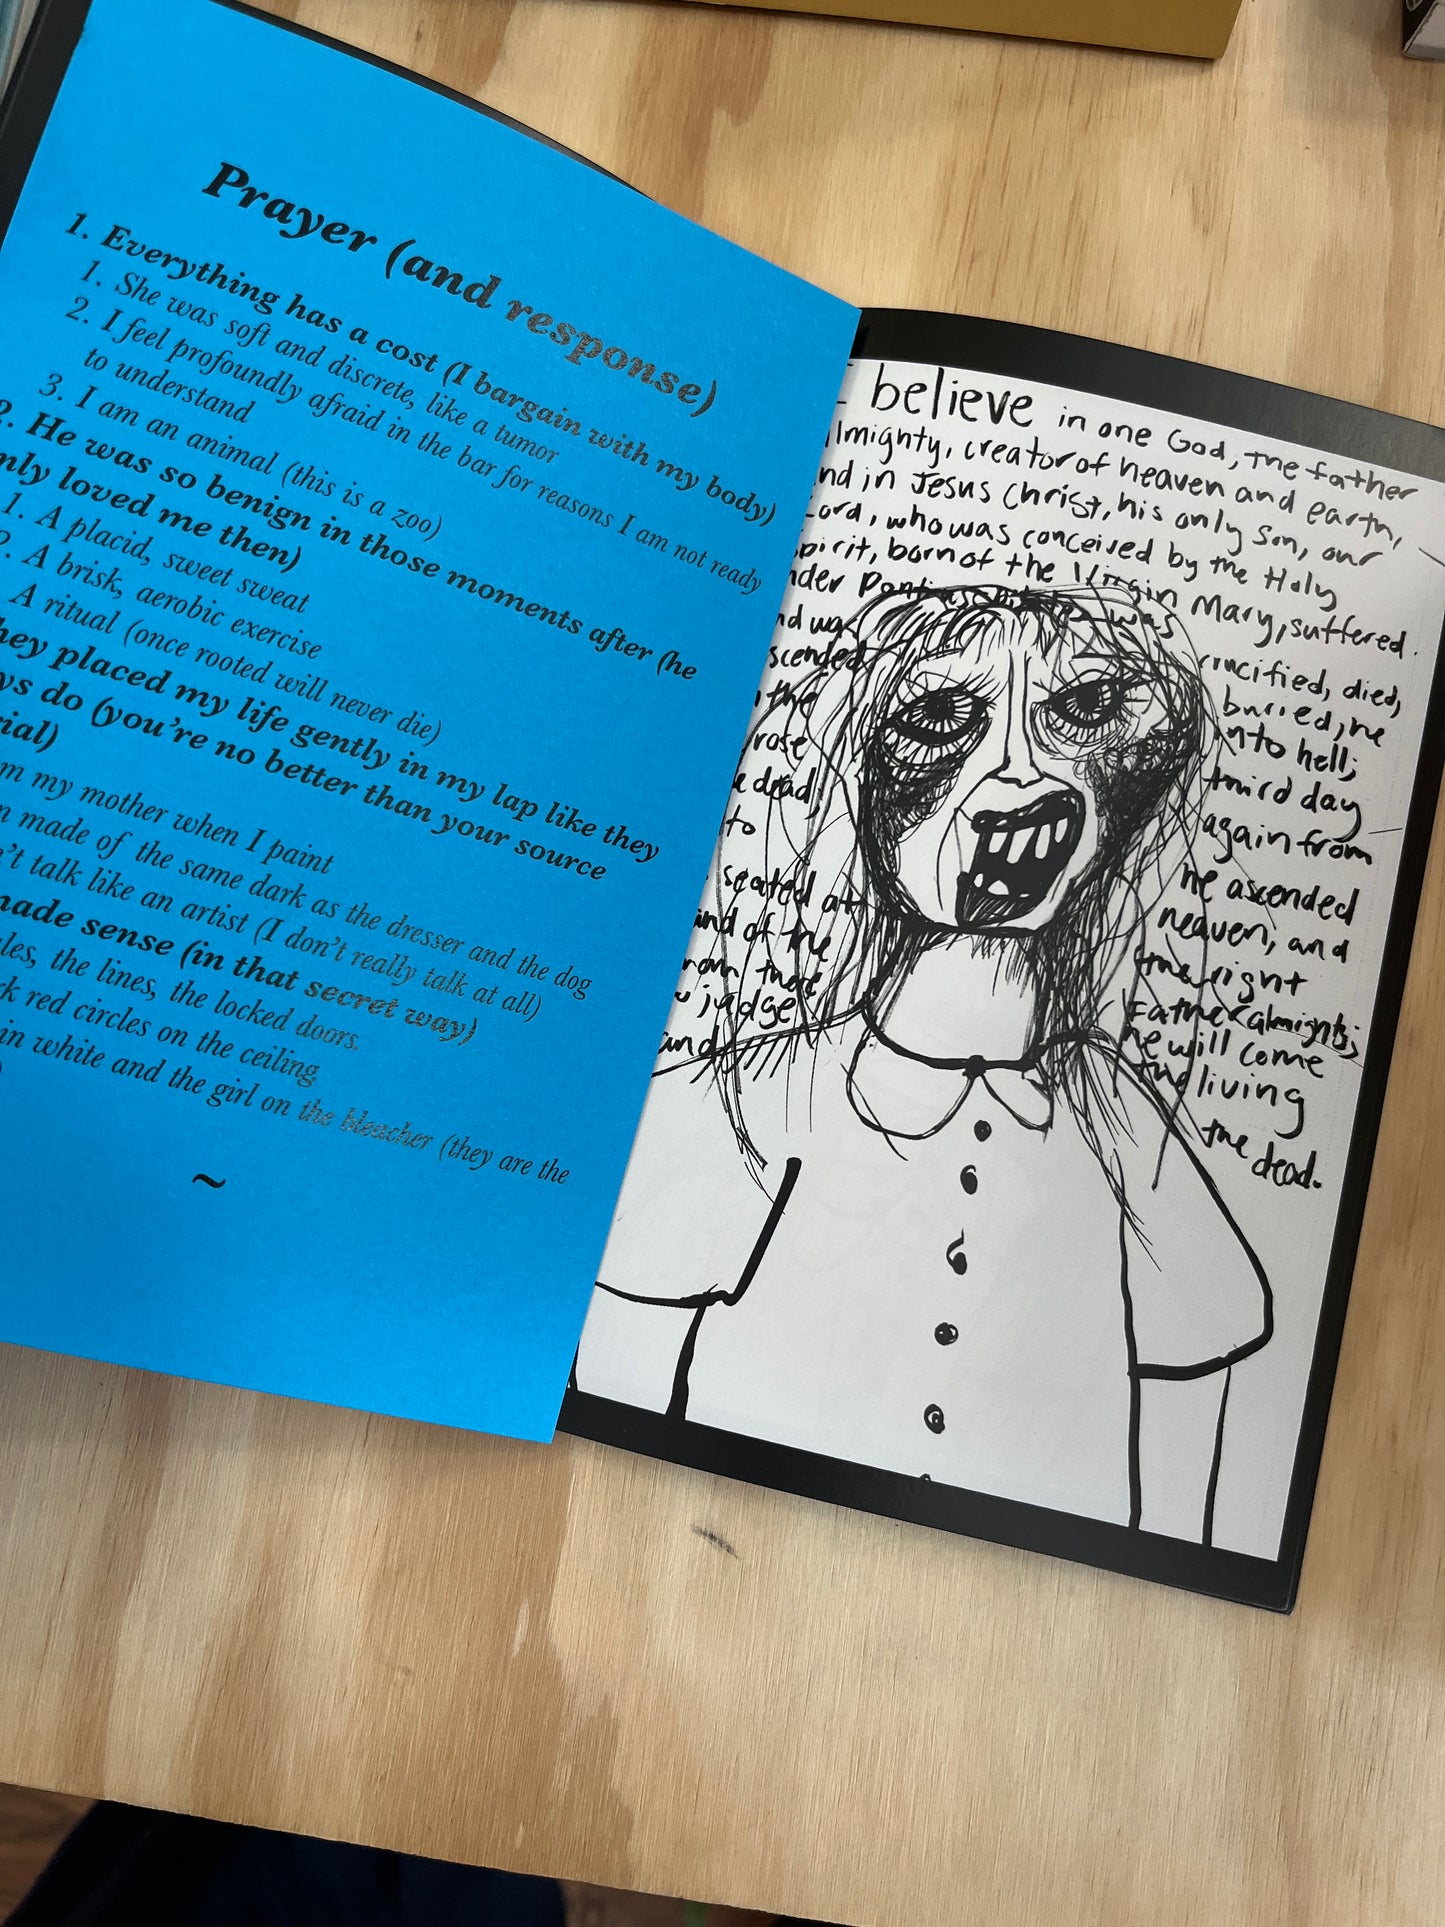 Prayer (and response)
1. Everything has a cost (I bargain with my body)
1. She was soft and discrete, like a tumor
2. I feel profoundly afraid in the bar for reasons I am not ready
to understand
3. I am an animal (this is a zoo)
2. He was so benign in those moments after (he
only loved me then)
1. A placid, sweet sweat
2. A brisk, aerobic exercise
A ritual (once rooted will never die)
they placed my life gently in my lap like they
do (you're no better than your source
my mother when I paint
made of the same dark as the dresser and the dog
talk like an artist (I don't really talk at all)
made sense (in that secret way)
the lines, the locked doors.
red circles on the ceiling
in white and the girl on the bleacher (they are the
~
I believe in one God, the father
almighty, creator of heaven and earth,
and in Jesus Christ, his only son, our
Lord, who was conceived by the Holy
spirit, born of the Virgin Mary, suffered
under Pontius Pilate, was
crucified, died,
and was buried; he
descended into hell;
the third day
rose again from
dead, he ascended
to heaven, and
seated at the right
hand of the Father almighty;
from there he will come
to judge the living
and the dead.